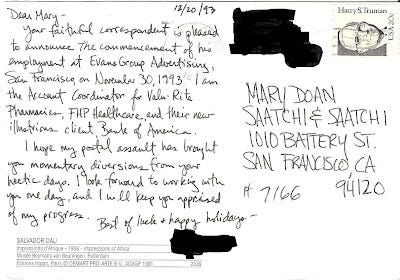 12/20/93
Dear Mary-
Your faithful correspondent is pleased
to announce the commencement of his
employment at Evans Group Advertising,
San Francisco, on November 30, 1993. I am
the Account Coordinator for Valu-Rite
Pharmacies, FHP Healthcare, and their new
illustrious client Bank of America.
I hope my postal assault has brought
you momentary diversions from your
hectic days. I look forward to working with
you one day, and I will keep you appraised
of my progress.
Best of luck & happy holidays-
SALVADOR DALI
Impressions d'Afrique - 1938 - Impressions of Africa
Musée Boymans van Beuningen, Rotterdam
Editions Hazan, Paris © DEMART PRO-ARTE B.V., ADAGP 1991
Harry S. Truman
USA 20c
MARY DOAN
SAATCHI & SAATCHI
1010 BATTERY ST.
SAN FRANCISCO, CA
94120
# 7/66